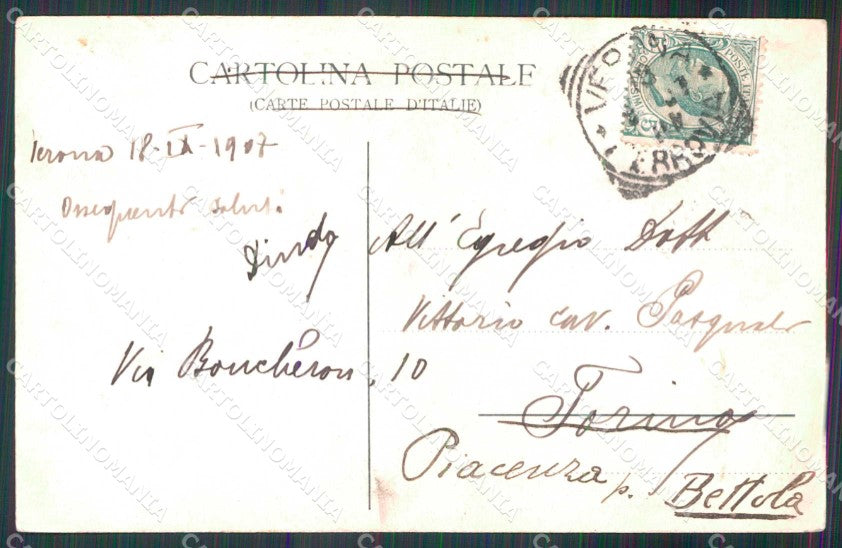 CARTOLINA POSTALE
(CARTE POSTALE D'ITALIE)
Verona 18-IX-1907
Ossequenti saluti
All' Egregio Dott
Vittorio cav. Pasquale
Via Boucheron, 10
Torino
Piacenza p. Bettola
VERONA
POSTE ITALIANE
CARTOLINOMANIA